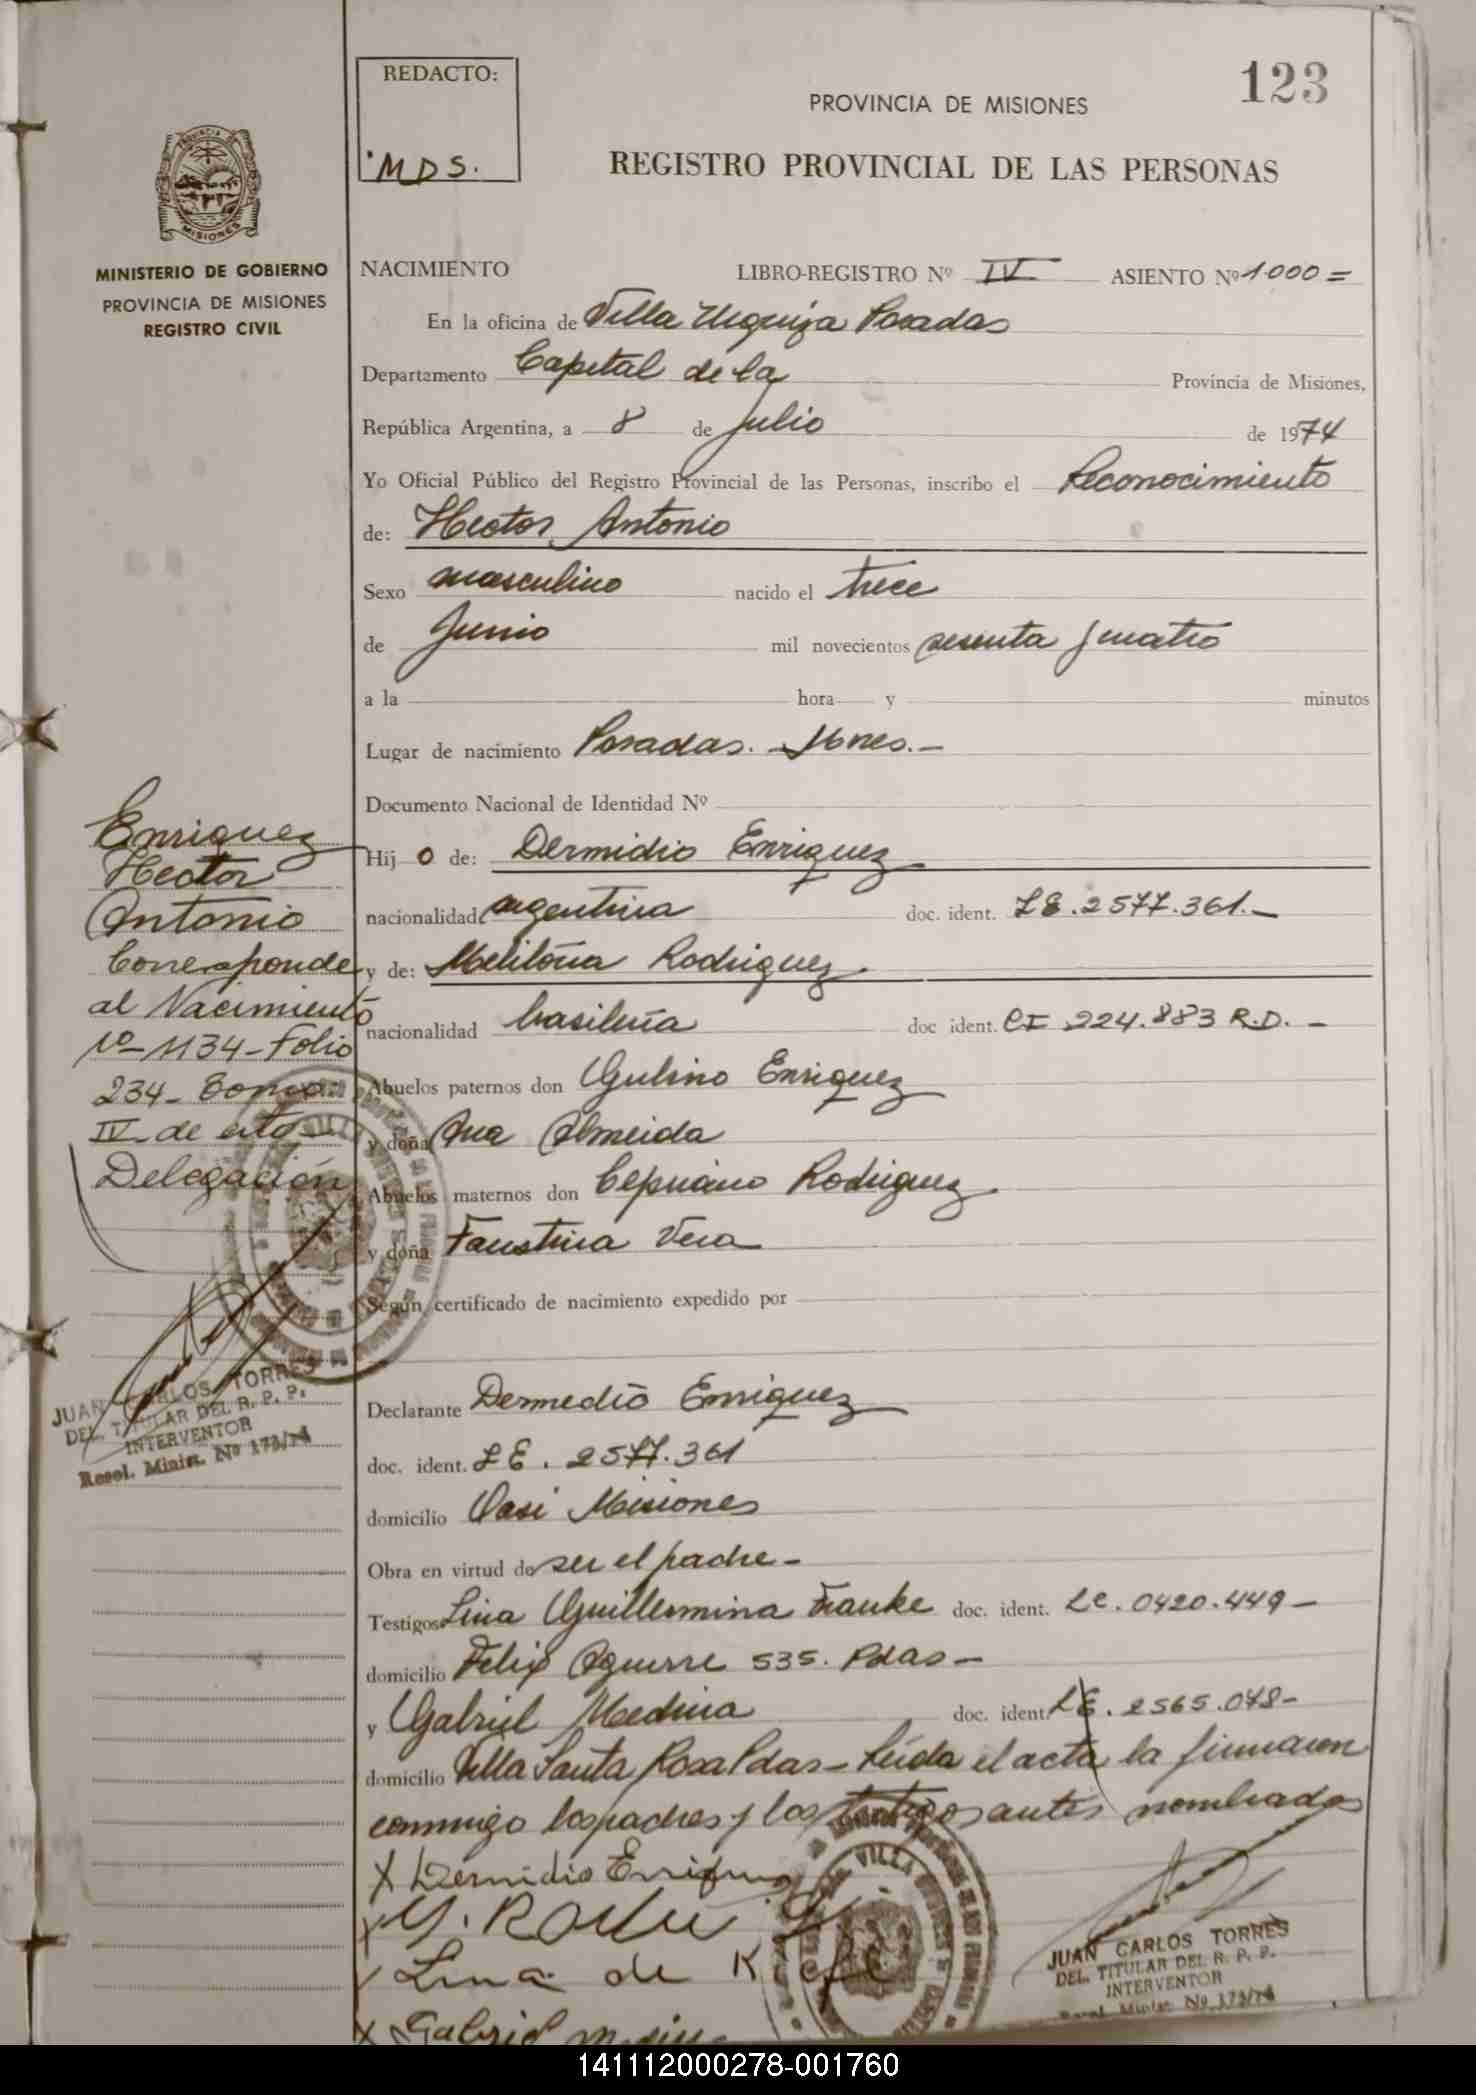 REDACTO:
MDS.
123
PROVINCIA DE MISIONES
REGISTRO PROVINCIAL DE LAS PERSONAS
MISIONES
MINISTERIO DE GOBIERNO
PROVINCIA DE MISIONES
REGISTRO CIVIL
NACIMIENTO LIBRO-REGISTRO Nº IV ASIENTO Nº 1000=
En la oficina de Villa Urquiza Posadas
Departamento Capital de la Provincia de Misiones,
República Argentina, a 8 de Julio de 1974
Yo Oficial Público del Registro Provincial de las Personas, inscribo el Reconocimiento
de: Hector Antonio
Sexo masculino nacido el trece
de Junio mil novecientos sesenta y cuatro
a la hora y minutos
Lugar de nacimiento Posadas. Mnes.-
Documento Nacional de Identidad Nº
Hij o de: Dermidio Enriquez
nacionalidad argentina doc. ident. LE.2577.361.-
y de: Melitona Rodriguez
nacionalidad brasileña doc ident. CI 224.883 R.D. -
Abuelos paternos don Gulino Enriquez
y doña Ana Almeida
Abuelos maternos don Cipriano Rodriguez
y doña Faustina Vera
Según certificado de nacimiento expedido por
Declarante Dermedio Enriquez
doc. ident. LE. 2577.361
domicilio Oasi Misiones
Obra en virtud de ser el padre-
Testigos Lina Guillermina Franke doc. ident. LC. 0420.449-
domicilio Felix Aguirre 535. Pdas-
y Gabriel Medina doc. ident LE. 2565.048-
domicilio Villa Santa Rosa Pdas- Leída el acta la firmaron
conmigo los padres y los testigos antes nombrados
X Dermidio Enriquez
X M. Rodri
Lina de K
X Gabriel Medina
Enriquez
Hector
Antonio
Corresponde
al Nacimiento
Nº-1134-Folio
234- Tomo:
IV de esta
Delegación
JUAN CARLOS TORRES
DEL. TITULAR DEL R. P. P.
INTERVENTOR
Resol. Minist. Nº 173/74
JUAN CARLOS TORRES
DEL. TITULAR DEL R. P. P.
INTERVENTOR
Resol. Minist. Nº 173/74
141112000278-001760